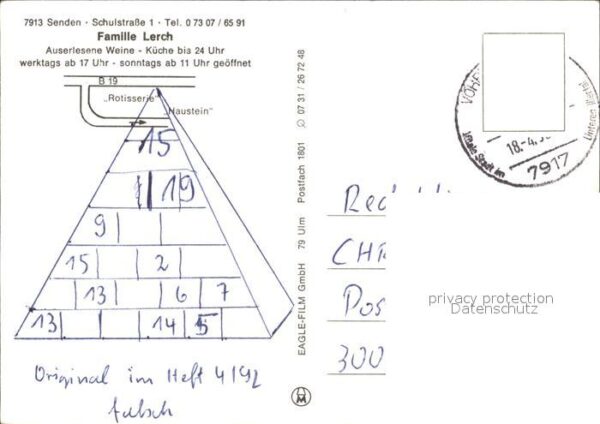 7913 Senden · Schulstraße 1 · Tel. 0 73 07 / 65 91
Famille Lerch
Auserlesene Weine - Küche bis 24 Uhr
werktags ab 17 Uhr - sonntags ab 11 Uhr geöffnet
B 19
„Rotisserie“
„Haustein“
15
19
9
15 2
13 6 7
13 14 5
Original im Heft 4/92
falsch
EAGLE-FILM GmbH 79 Ulm Postfach 1801 07 31 / 26 72 48
VÖHR
18.-4.
7917
Vitale Stadt im
Unteren Illertal
CHR
Pos
300
privacy protection
Datenschutz